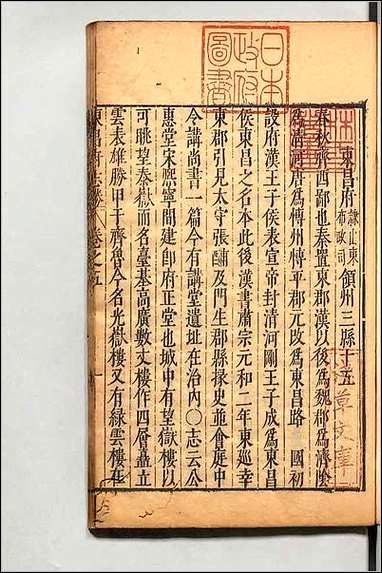 日本
政府
圖書
東昌府隸山東布政司領州三縣十五
春秋齊西鄙也秦置東郡漢以後爲魏郡爲濟陰
爲清河唐爲博州博平郡元改爲東昌路 國初
設府漢王子侯表宣帝封清河剛王子成爲東昌
侯東昌之名本此後漢書肅宗元和二年東廵幸
東郡引見太守張酺及門生郡縣掾史並會庭中
令講尚書一篇今有講堂遺址在治內○志云公
惠堂宋熈寧間建即府正堂也城中有望嶽樓以
可眺望泰嶽而名臺基高廣數丈樓作四層矗立
雲表雄勝甲于齊魯今名光嶽樓又有綠雲樓在
草文庫